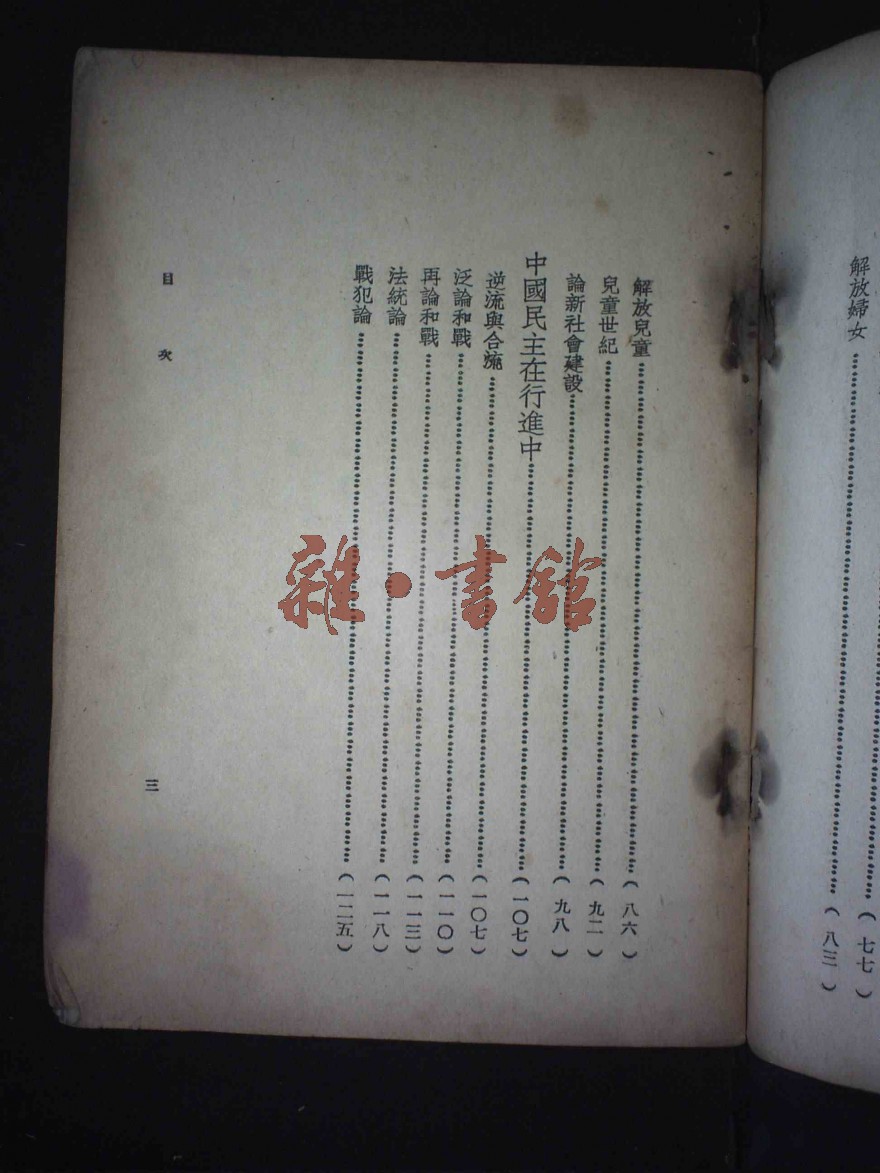 （七七）
解放婦女……（八三）
解放兒童……（八六）
兒童世紀……（九二）
論新社會建設……（九八）
中國民主在行進中……（一〇七）
逆流與合流……（一〇七）
泛論和戰……（一一〇）
再論和戰……（一一三）
法統論……（一一八）
戰犯論……（一二五）
目次
三
雜·書館